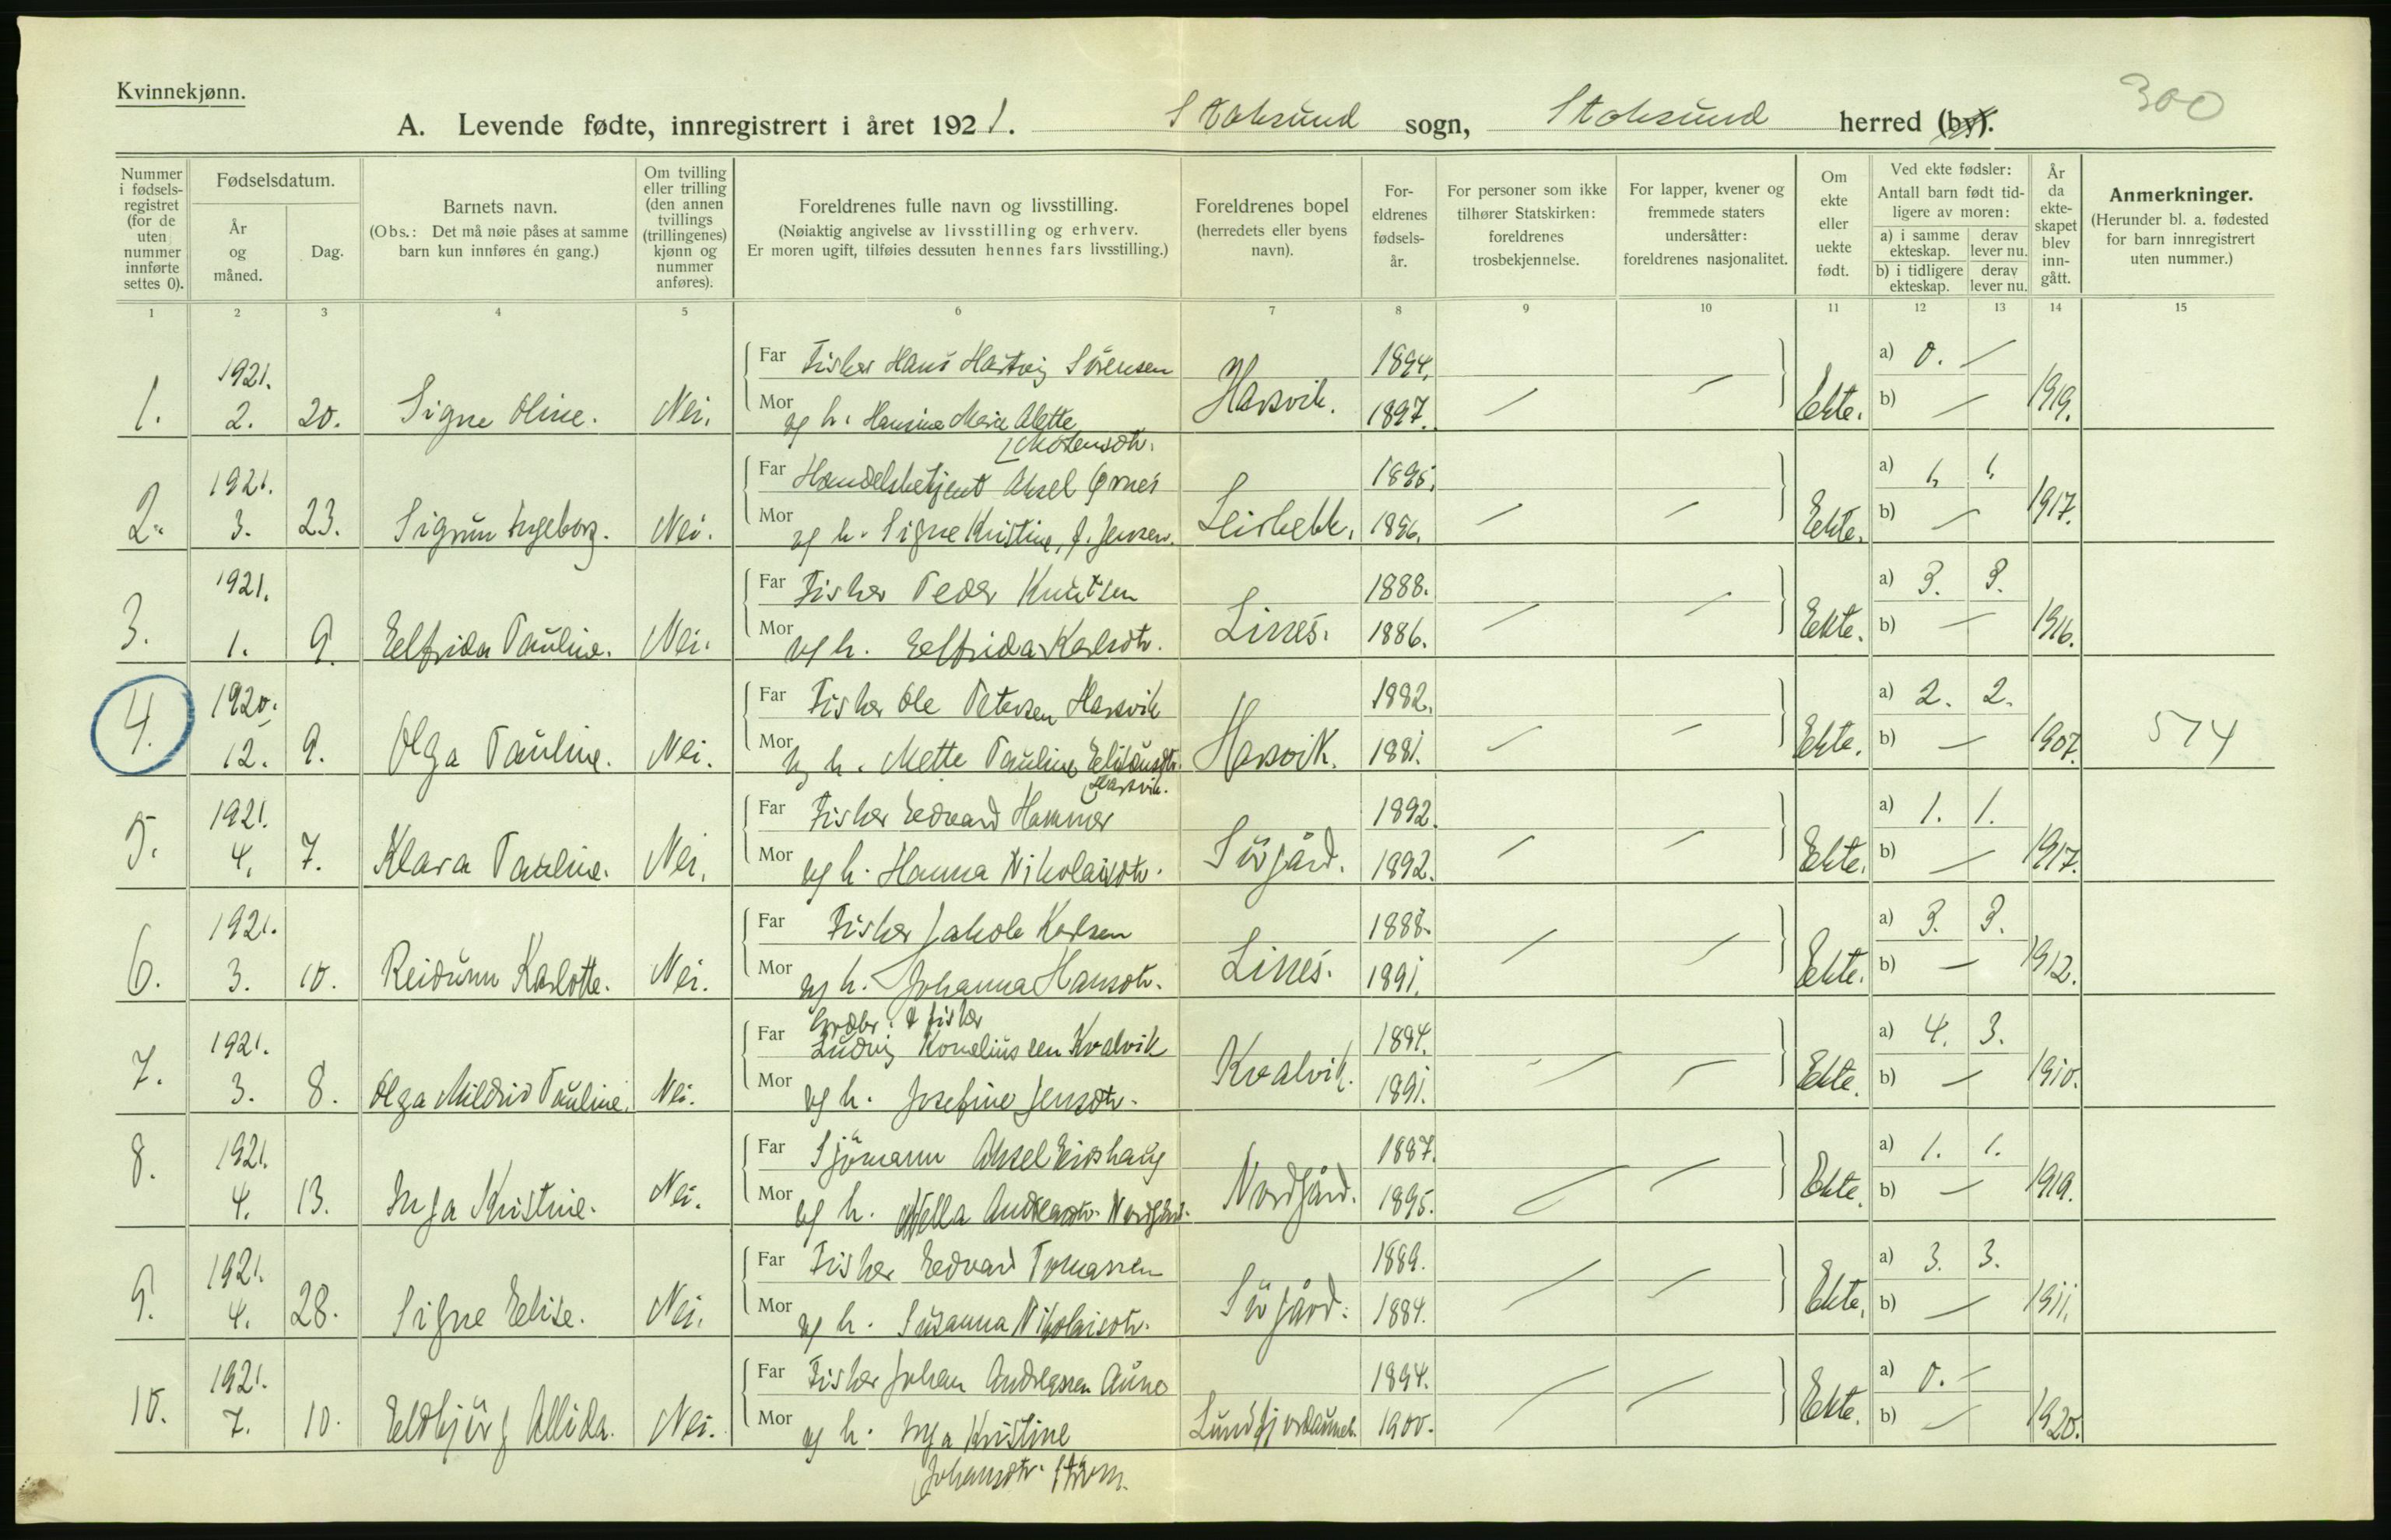 Kvinnekjønn.
300
A. Levende fødte, innregistrert i året 1921. Stoksund sogn, Stoksund herred (by).
Nummer i fødsels-registret (for de uten nummer innførte settes 0).
Fødselsdatum.
År og måned.
Dag.
Barnets navn.
(Obs.: Det må nøie påses at samme barn kun innføres én gang.)
Om tvilling eller trilling (den annen tvillings (trillingenes) kjønn og nummer anføres).
Foreldrenes fulle navn og livsstilling.
(Nøiaktig angivelse av livsstilling og erhverv.
Er moren ugift, tilføies dessuten hennes fars livsstilling.)
Foreldrenes bopel (herredets eller byens navn).
For-eldrenes fødsels-år.
For personer som ikke tilhører Statskirken: foreldrenes trosbekjennelse.
For lapper, kvener og fremmede staters undersåtter: foreldrenes nasjonalitet.
Om ekte eller uekte født.
Ved ekte fødsler: Antall barn født tid-ligere av moren:
a) i samme ekteskap. derav lever nu.
b) i tidligere ekteskap. derav lever nu.
År da ekte-skapet blev inn-gått.
Anmerkninger.
(Herunder bl. a. fødested for barn innregistrert uten nummer.)
1 2 3 4 5 6 7 8 9 10 11 12 13 14 15
Far Fisker Hans Hartvig Sörensen 1894. a) 0. /
1. 1921. 2. 20. Signe Oline. Nei. Mor og h. Hansine Marie Alette Harsvik. 1897. / / Ekte. b) / 1919.
Mortensdtr.
Far Handelsbetjent Aksel Ørnes 1895. a) 1. 1.
2. 1921. 3. 23. Sigrun Ingeborg. Nei. Mor og h. Signe Kristine, f. Jensen. Leirbekk. 1896. / / Ekte. b) / 1917.
Far Fisker Peder Knutsen 1888. a) 3. 3.
3. 1921. 1. 9. Eelfrida Pauline. Nei. Mor og h. Eelfrida Karlsdtr. Linnes. 1886. / / Ekte. b) / 1916.
Far Fisker Ole Petersen Harsvik 1882. a) 2. 2.
4. 1920. 12. 9. Olga Pauline. Nei. Mor og h. Mette Pauline Harsvik. 1881. / / Ekte. b) / 1907. 574
Harsvik.
Far Fisker Edvard Hammer 1892. a) 1. 1.
5. 1921. 4. 7. Klara Pauline. Nei. Mor og h. Hanna Nikolaisdtr. Sörgård. 1892. / / Ekte. b) / 1917.
Far Fisker Jakob Karlsen 1888. a) 3. 3.
6. 1921. 3. 10. Reidunn Karlotte. Nei. Mor og h. Johanna Hansdtr. Linnes. 1891. / / Ekte. b) / 1912.
Grdbr. & fisker
Far Ludvig Korneliussen Kvalvik 1894. a) 4. 3.
7. 1921. 3. 8. Olga Mildrid Pauline. Nei. Mor og h. Josefine Jensdtr. Kvalvik. 1891. / / Ekte. b) / 1910.
Far Sjömann Aksel 1887. a) 1. 1.
8. 1921. 4. 13. Inga Kristine. Nei. Mor og h. Andreasdtr. Nordgård. Nordgård. 1895. / / Ekte. b) / 1919.
Far Fisker Edvard Tomassen 1889. a) 3. 3.
9. 1921. 4. 28. Signe Elise. Nei. Mor og h. Susanna Nikolaisdtr. Sörgård. 1884. / / Ekte. b) / 1911.
Far Fisker Johan Andreassen Aune 1894. a) 0. /
10. 1921. 7. 10. Eldbjörg Allida. Nei. Mor og h. Inga Kristine 1900. / / Ekte. b) / 1920.
Johansdtr. Ström.